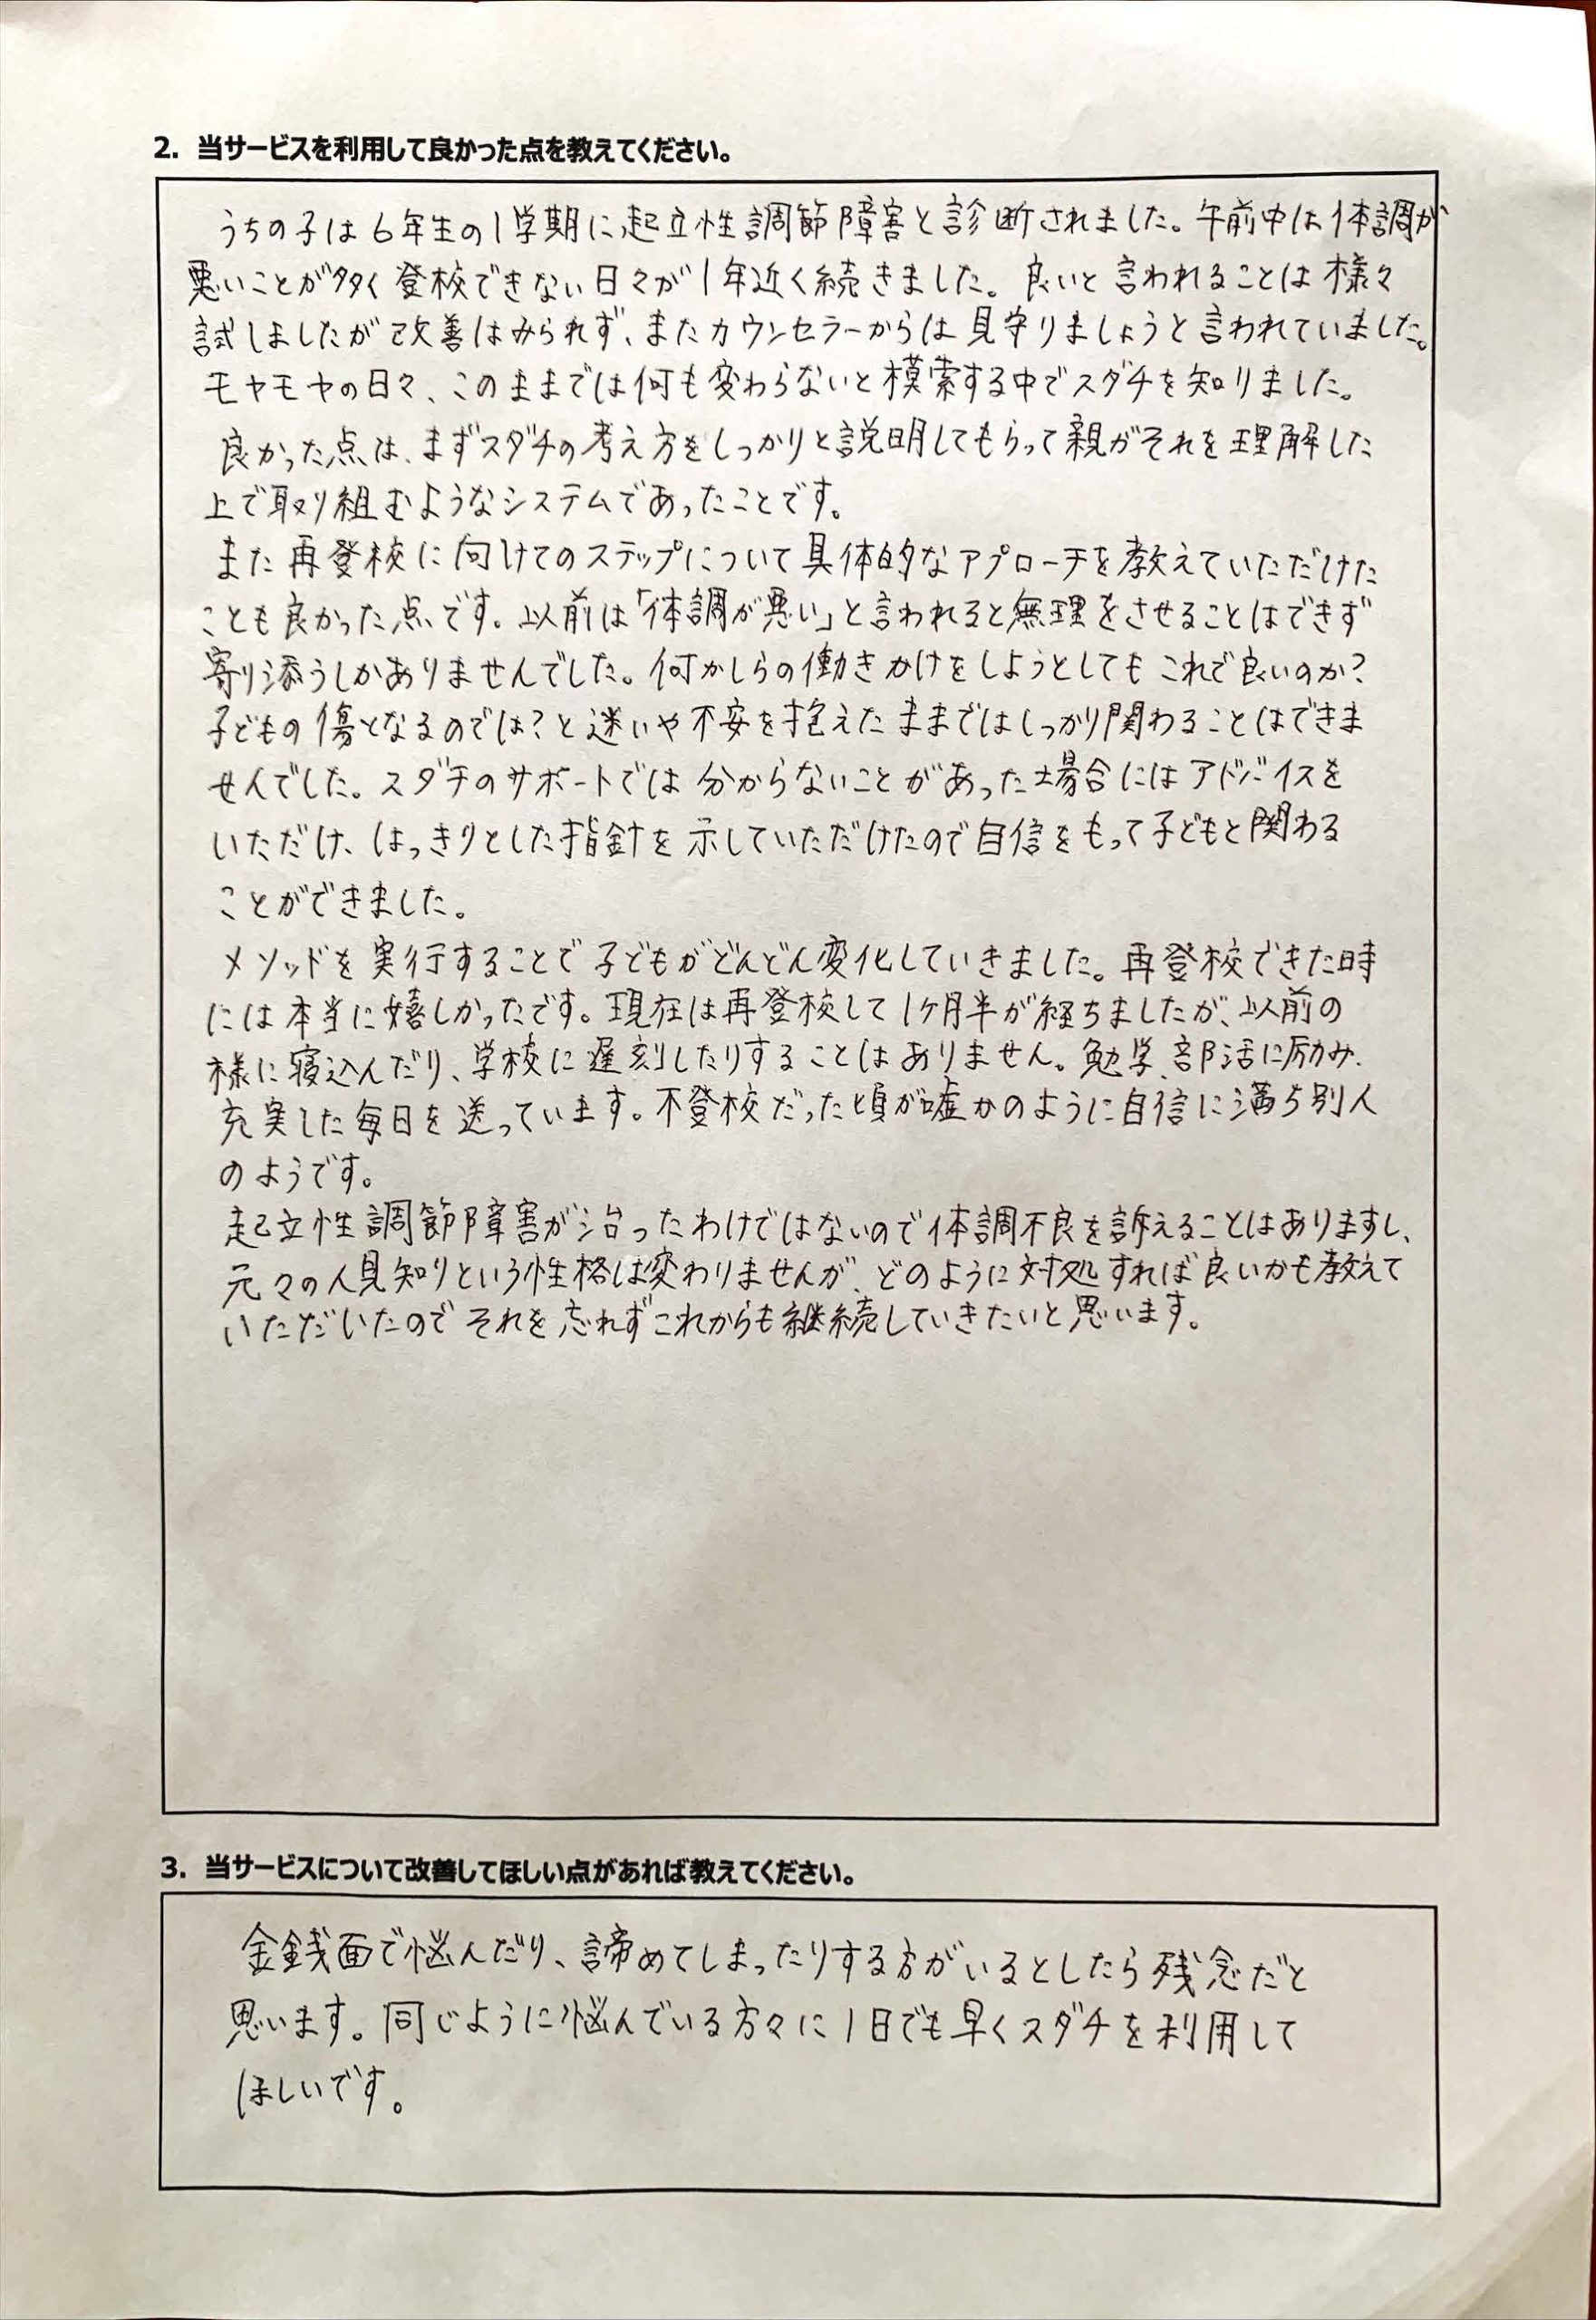 2. 当サービスを利用して良かった点を教えてください。
うちの子は6年生の1学期に起立性調節障害と診断されました。午前中は体調が
悪いことが多く登校できない日々が1年近く続きました。良いと言われることは様々
試しましたが改善はみられず、またカウンセラーからは見守りましょうと言われていました。
モヤモヤの日々、このままでは何も変わらないと模索する中でスダチを知りました。
良かった点は、まずスダチの考え方をしっかりと説明してもらって親がそれを理解した
上で取り組むようなシステムであったことです。
また再登校に向けてのステップについて具体的なアプローチを教えていただけた
ことも良かった点です。以前は「体調が悪い」と言われると無理をさせることはできず
寄り添うしかありませんでした。何かしらの働きかけをしようとしてもこれで良いのか?
子どもの傷となるのでは?と迷いや不安を抱えたままではしっかり関わることはできま
せんでした。スダチのサポートでは分からないことがあった場合にはアドバイスを
いただけ、はっきりとした指針を示していただけたので自信をもって子どもと関わる
ことができました。
メソッドを実行することで子どもがどんどん変化していきました。再登校できた時
には本当に嬉しかったです。現在は再登校して1ヶ月半が経ちましたが、以前の
様に寝込んだり、学校に遅刻したりすることはありません。勉学、部活に励み、
充実した毎日を送っています。不登校だった頃が嘘かのように自信に満ち別人
のようです。
起立性調節障害が治ったわけではないので体調不良を訴えることはありますし、
元々の人見知りという性格は変わりませんが、どのように対処すれば良いかも教えて
いただいたのでそれを忘れずこれからも継続していきたいと思います。
3. 当サービスについて改善してほしい点があれば教えてください。
金銭面で悩んだり、諦めてしまったりする方がいるとしたら残念だと
思います。同じように悩んでいる方々に1日でも早くスダチを利用して
ほしいです。